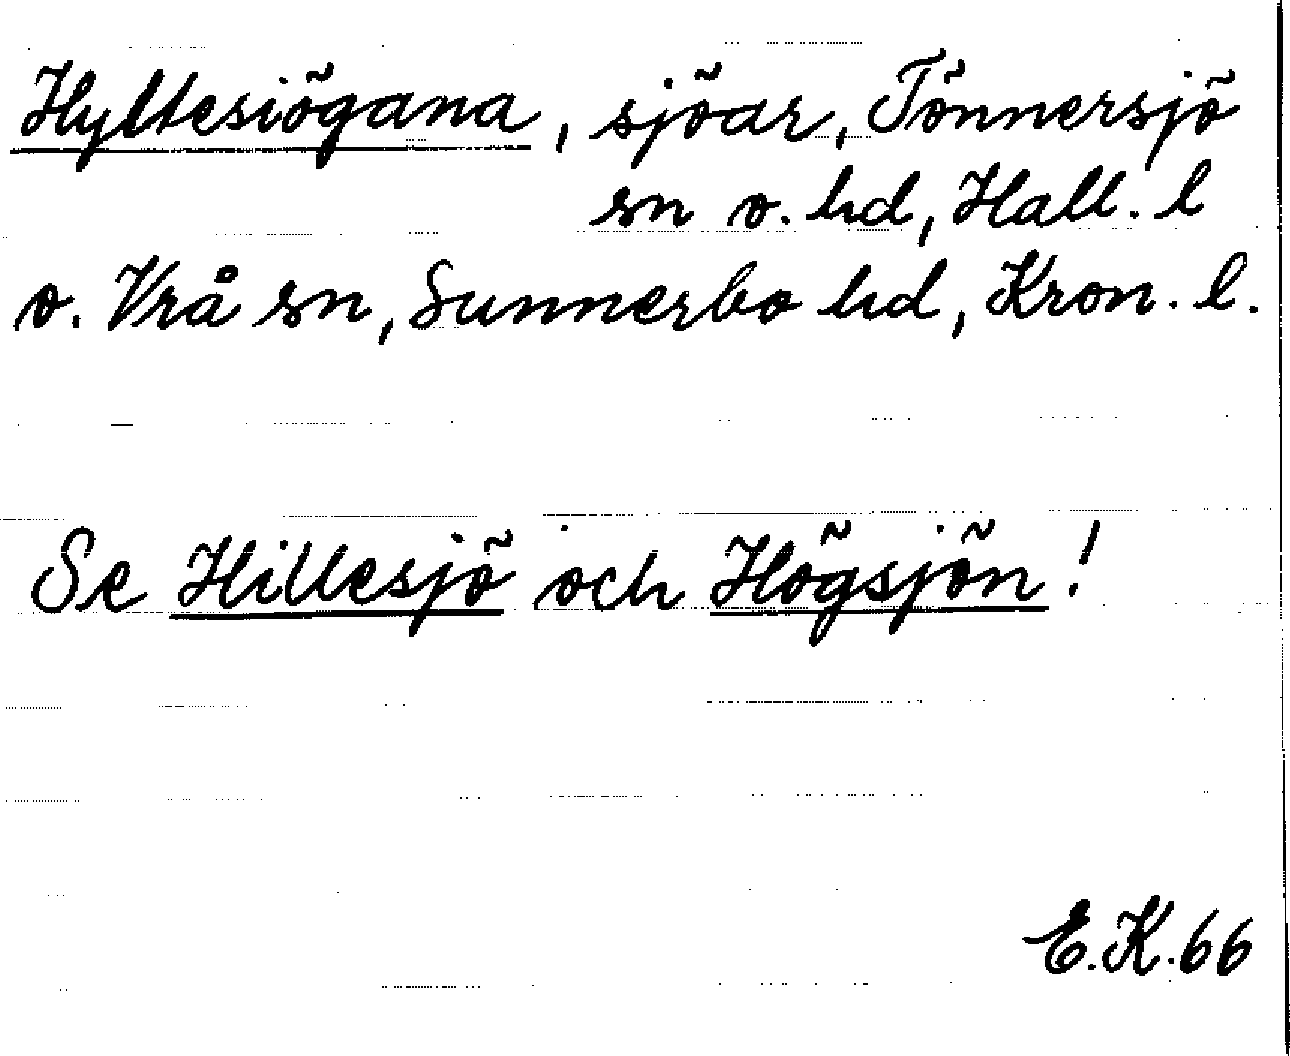 Hyltesiögana, sjöar, Tönnersjö
sn o. hd, Hall. l
o. Vrå sn, Sunnerbo hd, Kron. l.
Se Hillesjö och Högsjön!
E.K.66